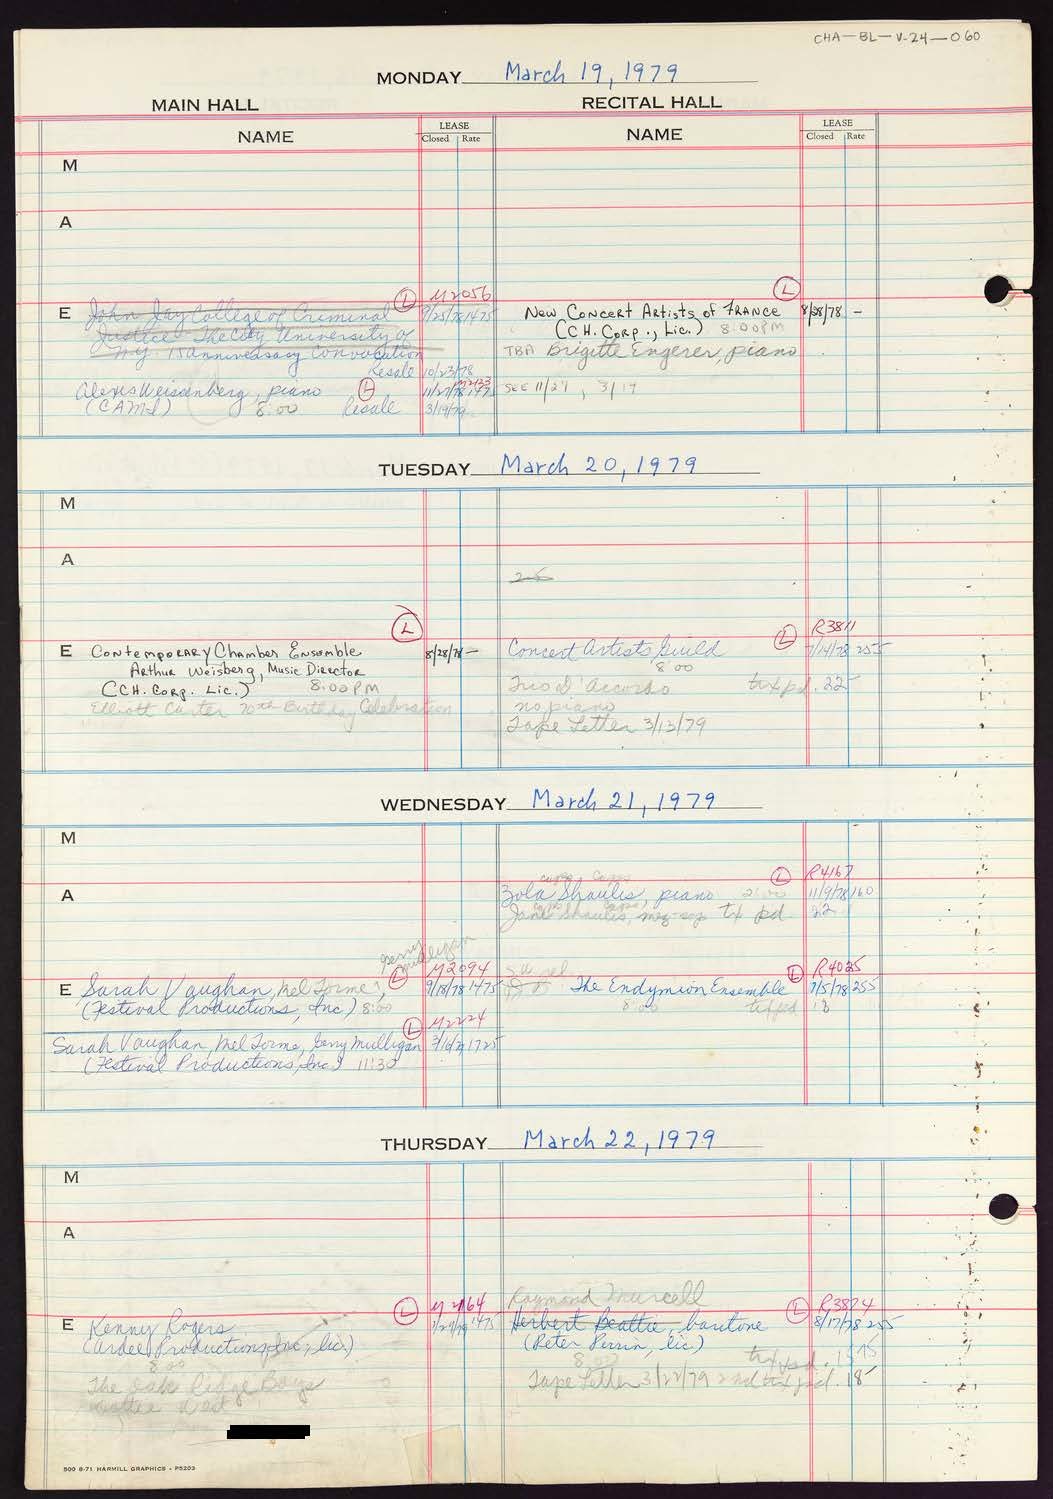 CHA-BL-V-24-060
MONDAY March 19, 1979
MAIN HALL RECITAL HALL
NAME LEASE Closed Rate NAME LEASE Closed Rate
M
A
E John Jay College of Criminal (L) M2056 9/25/78 1475
Justice - The City University of
N.Y. 15 anniversary Convocation
Resale 10/23/78
Alexis Weissenberg, piano (L) M2133 11/27/78 1475
(CAMI) 8:00 Resale 3/19/79
(L)
New Concert Artists of FRANCE 8/28/78 -
(C.H. Corp., Lic.) 8:00PM
TBA Brigitte Engerer, piano
SEE 11/27, 3/17
TUESDAY March 20, 1979
M
A
25
(L)
E Contemporary Chamber Ensemble 8/28/78 -
Arthur Weisberg, Music Director
(C.H. Corp. Lic.) 8:00PM
Elliott Carter 70th Birthday Celebration
(L) R3811
Concert Artists Guild 7/14/78 255
8:00
Trio D'Accordo tax pd. 22
no piano
Tape Letter 3/13/79
WEDNESDAY March 21, 1979
M
A
(L) R4167
Zola Shaulis, piano 2:00 11/9/78 160
Jane Shaulis, mez-sop tx pd. 22
Gerry Mulligan
E Sarah Vaughan, Mel Torme, (L) M2094 9/18/78 1475
(Festival Productions, Inc.) 8:00
Sarah Vaughan, Mel Torme, Gerry Mulligan (L) M2224 3/6/79 1725
(Festival Productions, Inc.) 11:30
The Endymion Ensemble (L) R4025 255
8:00 tax pd 18
THURSDAY March 22, 1979
M
A
E Kenny Rogers (L) M2164 1/29/79 1475
(Ardee Productions, Inc., lic.)
8:00
The Oak Ridge Boys
Dottie West
Raymond Murcell
Herbert Beattie, baritone (L) R3874 8/17/78 255
(Peter Perrin, lic.)
8:00 tx pd.
Tape Letter 3/22/79 2nd tax pd. 18
500 8-71 HARMILL GRAPHICS - P5203